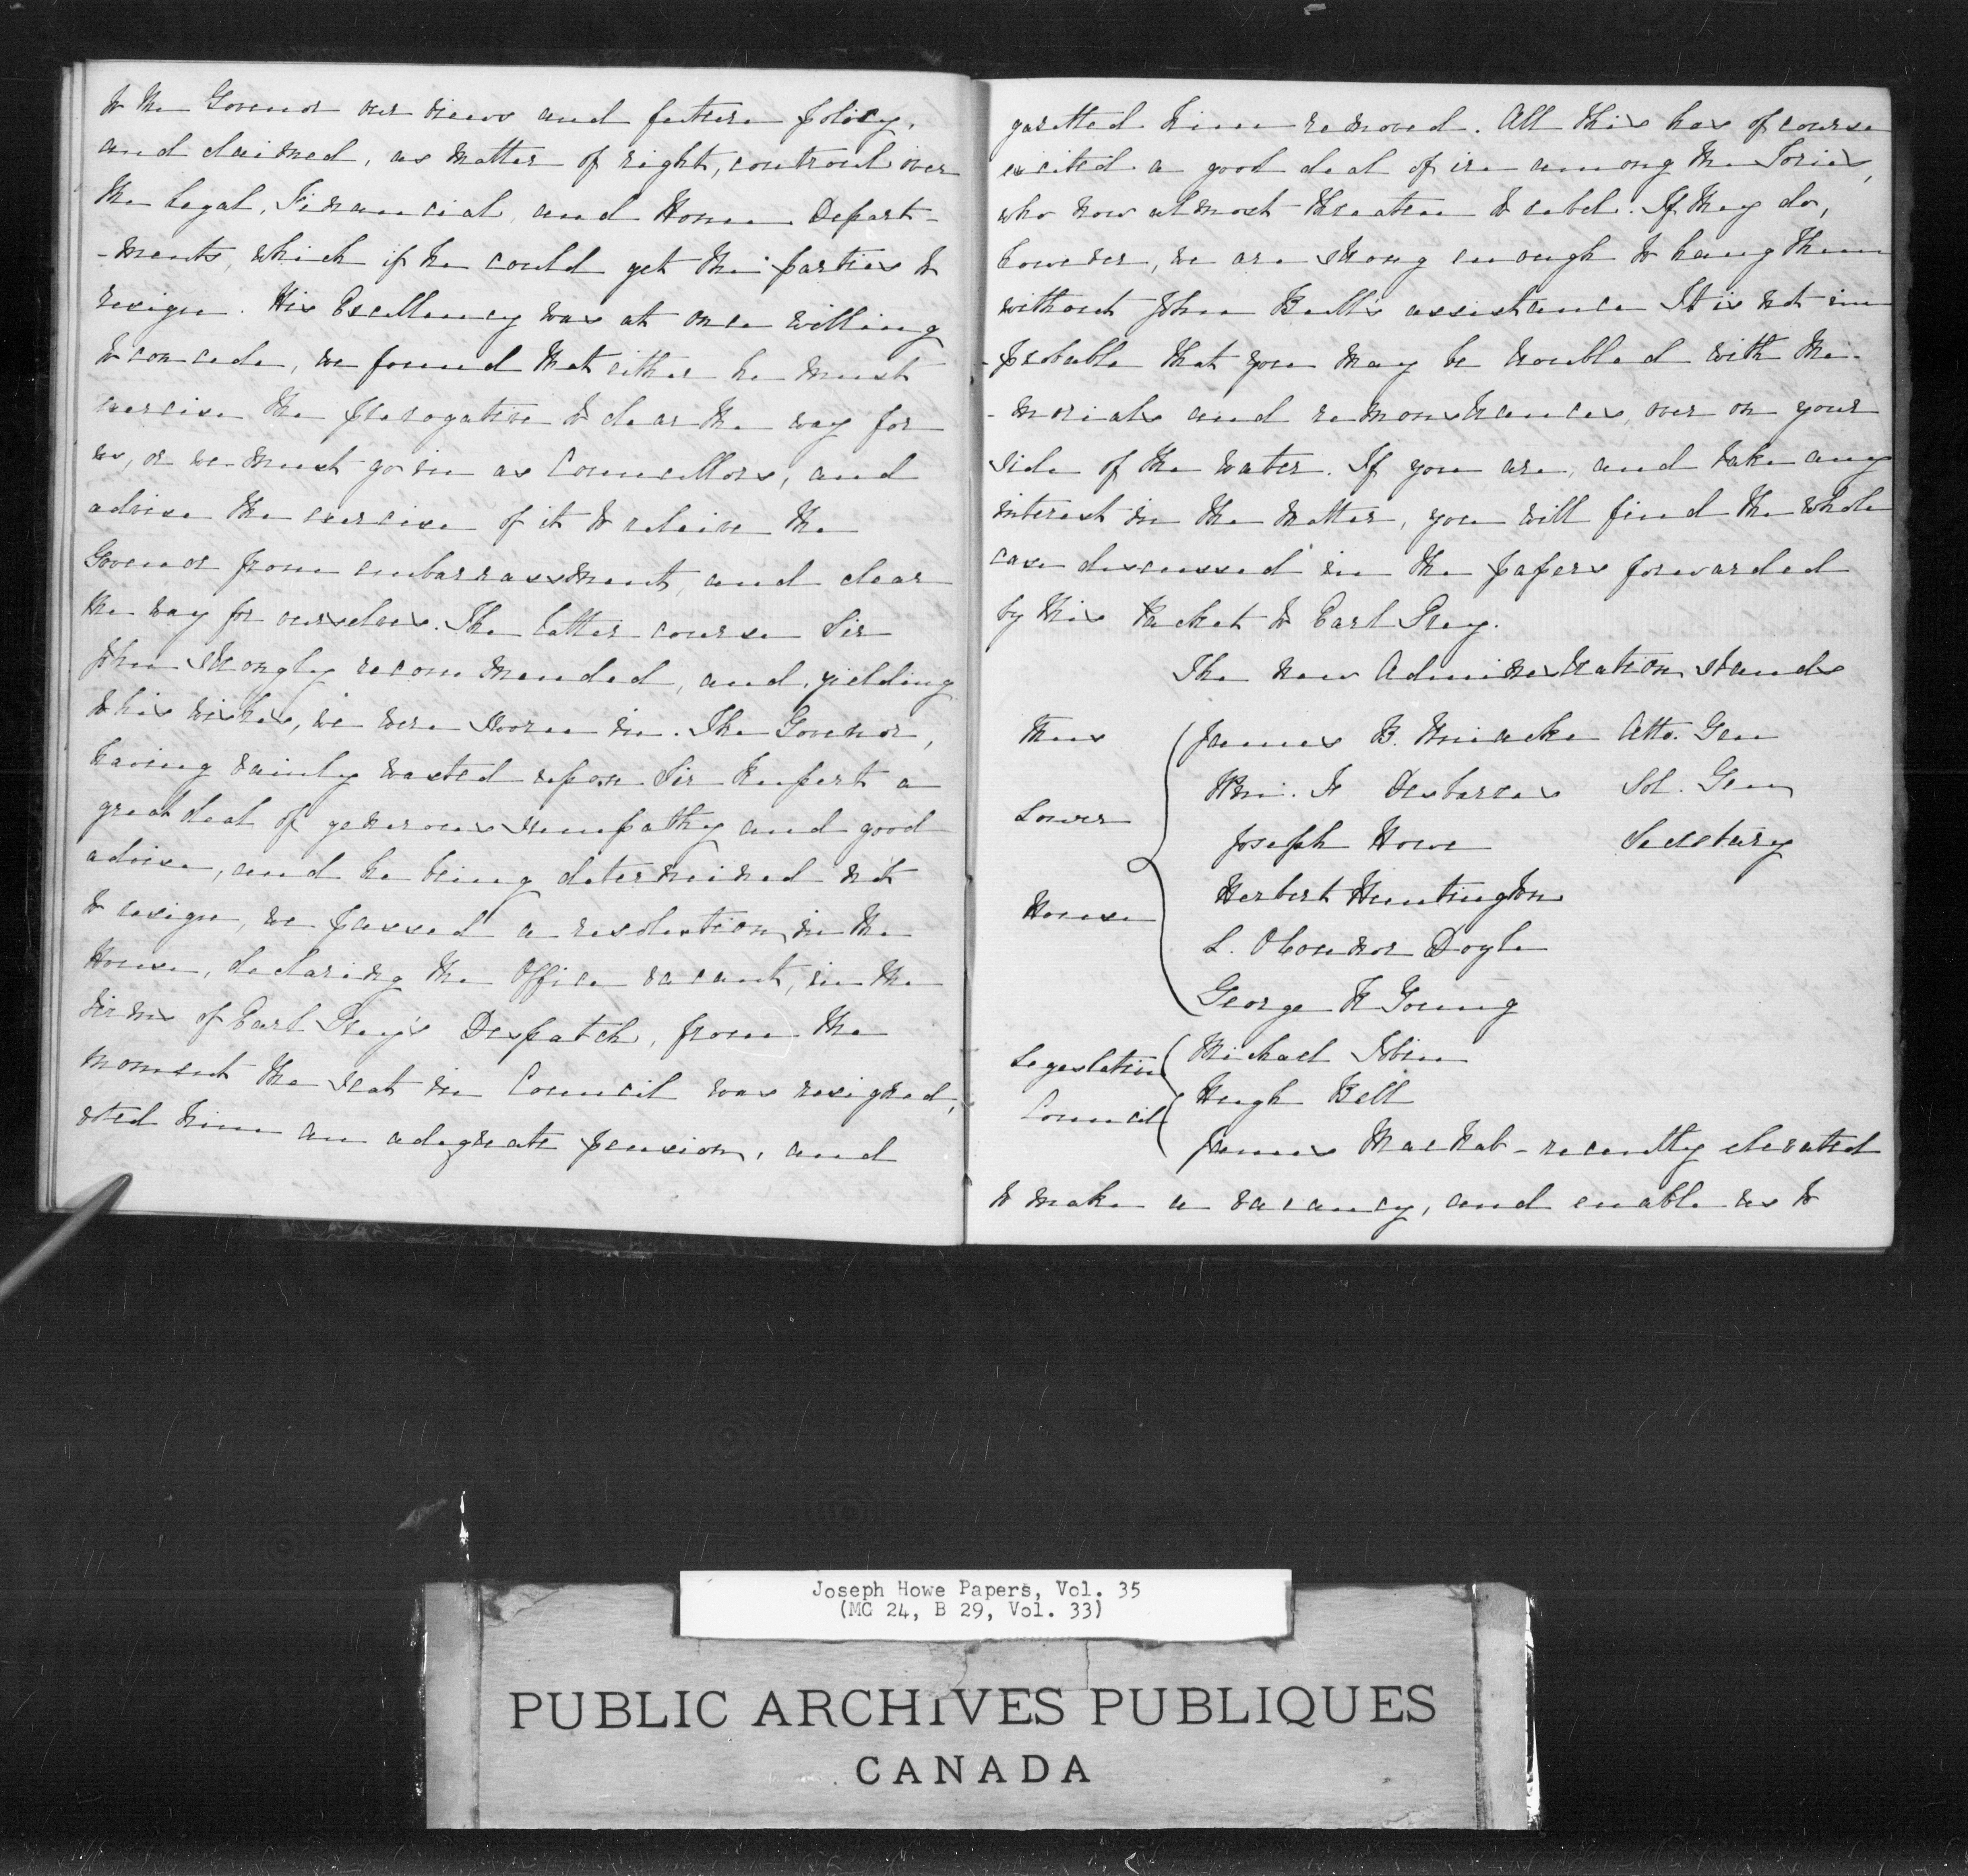 to the Govenor our views and future policy,
and claimed, as matter of right, controul over
the Legal, Financial, and Home Depart-
-ments, which if he could get the parties to
resign. His Excellency was at once willing
to concede, we found that either he must
exercise the prerogative to clear the way for
us, or we must go in as Councillors, and
advise the exercise of it to releive the
Govenor from embarrassment, and clear
the way for ourselves. The latter course Sir
John strongly recommended, and, yielding
to his wishes, we were sworn in. The Govenor,
having vainly wasted upon Sir Rupert a
great deal of generous simpathy and good
advise, and he being determined not
to resign, we passed a resolution, in the
House, declaring the Office vacant, in the
terms of Earl Grey's Despatch, from the
moment the seat in Council was resigned,
voted him an adequate pension, and
gazetted him removed. All this has of course
excited a good deal of ire among the Tories,
who now almost threaten to rebel. If they do,
however, we are strong enough to hang them
without John Bull's assistance It is not im
-probable that you may be troubled with me-
-morials and remonstrances, over on your
side of the water. If you are, and take any
interest in the matter, you will find the whole
case discussed in the papers forwarded
by this Packet to Earl Grey.
The new Administration stands
thus James B. Uniacke Atto. Gen
Wm. F Desbarres Sol. Gen
Lower
Joseph Howe Secretary
House Herbert Huntington
L. OConnor Doyle
George R Young
Legislative Michael Tobin
Hugh Bell
Council
James MacNab - recently elevated
to make a vacancy, and enable us to
Joseph Howe Papers, Vol. 35
(MG 24, B 29, Vol. 33)
PUBLIC ARCHIVES PUBLIQUES
CANADA